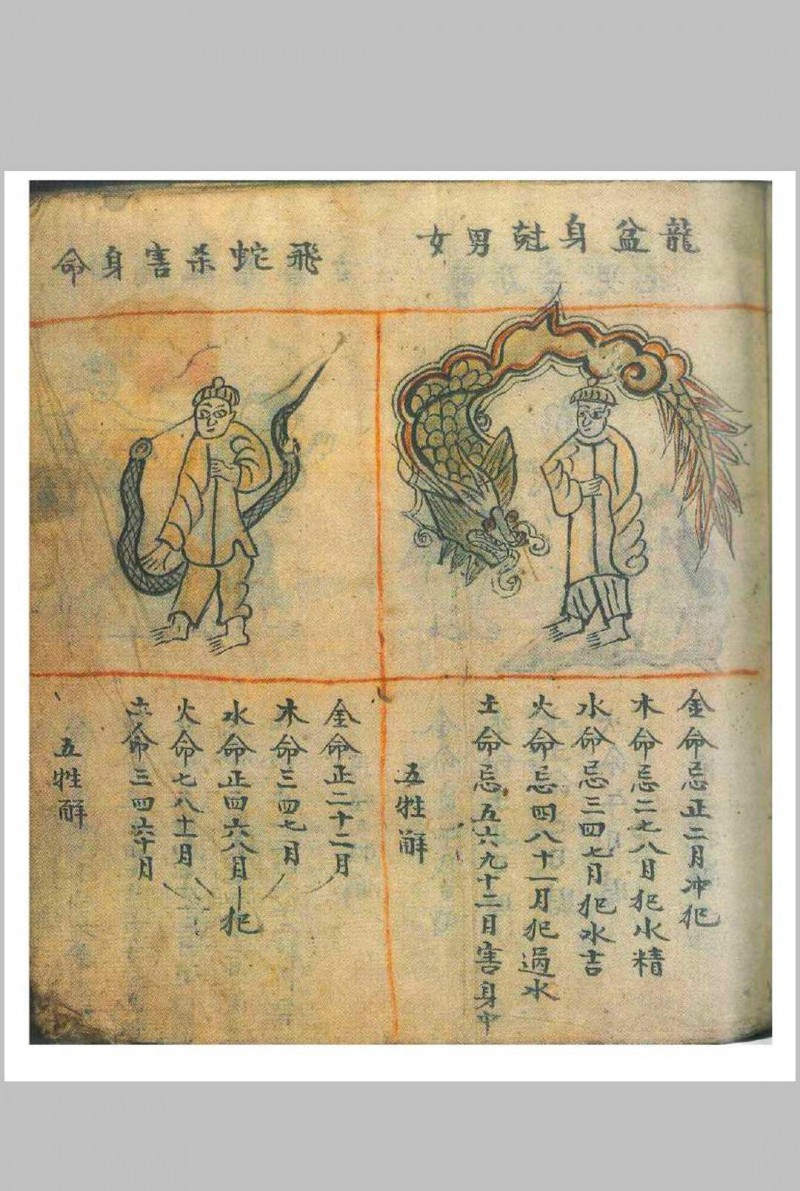 龍盆身尅男女
金命忌正二月冲犯
木命忌二七八月犯水精
水命忌三四七月犯水吉
火命忌四八十一月犯過水
土命忌五六九十二月害身中
五牲解
飛蛇杀害身命
金命正二十二月
木命三四七月
水命正四六八月犯
火命七八十一月
土命三四六十月
五牲解